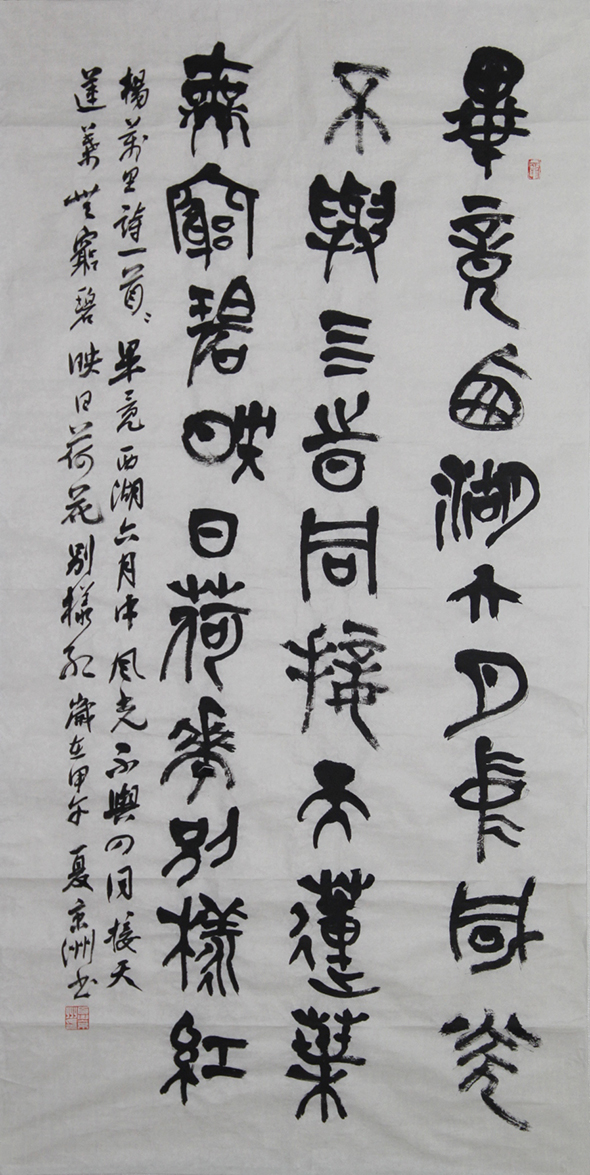 畢竟西湖六月中風光
不與三時同接天蓮葉
無窮碧映日荷華別樣紅
楊萬里詩一首：畢竟西湖六月中風光不與四同接天
蓮葉無窮碧映日荷花別樣紅歲在甲午夏京洲书